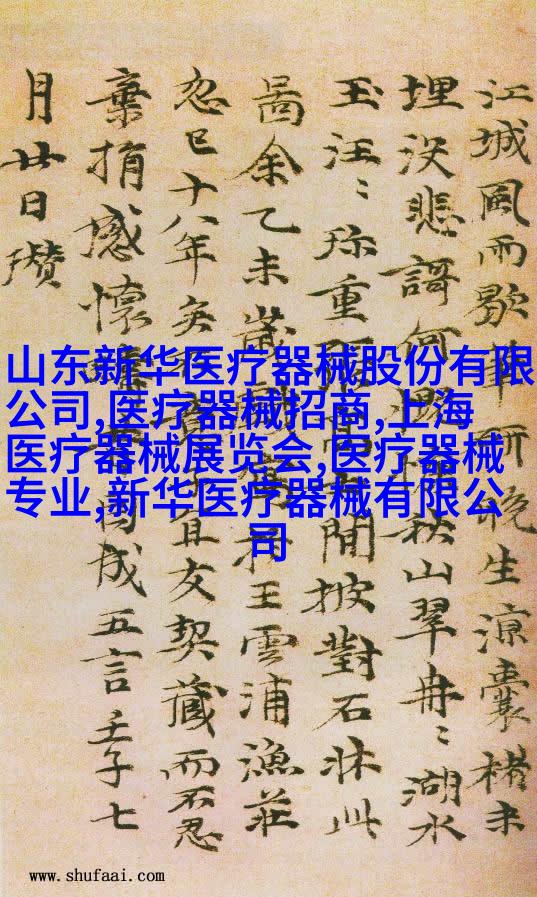 江城風雨歇筆研晚生涼囊楮未
埋沒悲謌何秋山翠冉〻湖水
玉汪〻珎重士閒披對石牀此
啚余乙未歲於王雲浦漁莊
忽已十八年矣不意宜友契藏而不忍
棄捐感懷因成五言壬子七
月廿日瓚
山东新华医疗器械股份有限
公司,医疗器械招商,上海
医疗器械展览会,医疗器械
专业,新华医疗器械有限公
司
www.shufaai.com